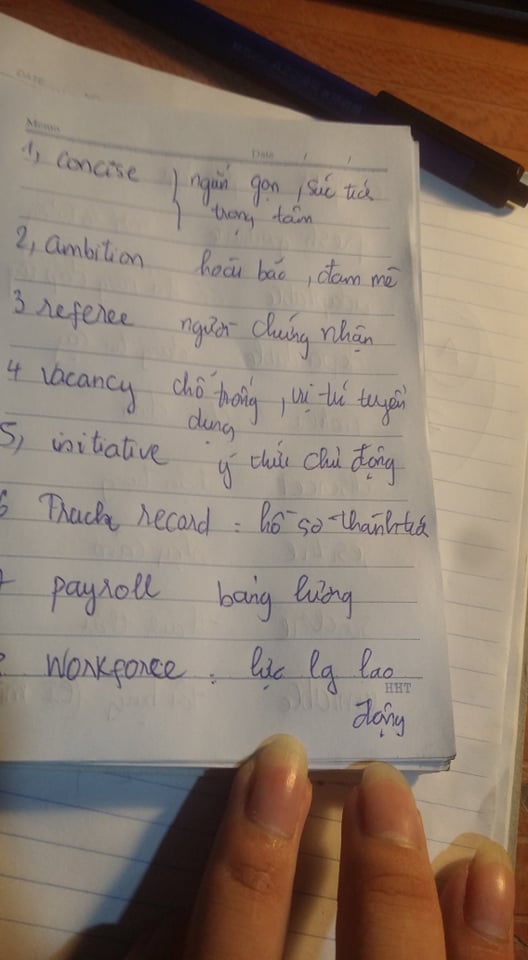 DATE
Memo
Date / /
1, concise } ngắn gọn, súc tích
trọng tâm
2, ambition hoài bão, đam mê
3 referee người chứng nhận
4 vacancy chỗ trống, vị trí tuyển
dụng
5, initiative ý thức chủ động
6 Track record = hồ sơ thành tích
7 payroll bảng lương
Workforce : lực lg lao
HHT
động